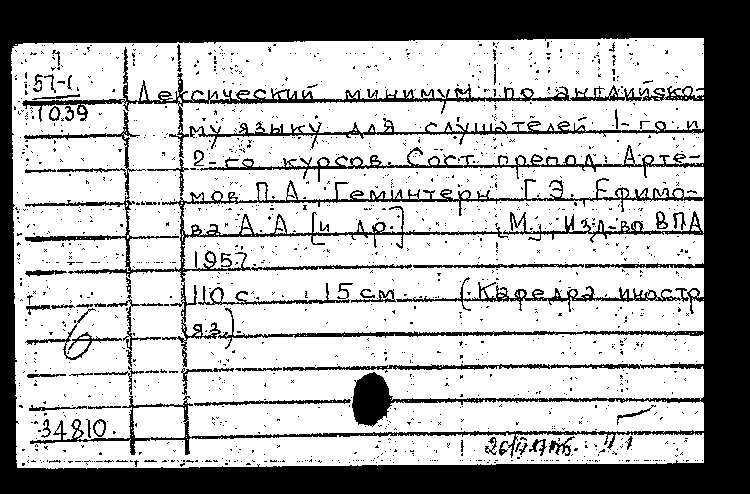 57-1
1039
Лексический минимум по английско-
му языку для слушателей 1-го и
2-го курсов. Сост. препод. Арте-
мов П.А., Геминтерн Г.Э., Ефимо-
ва А.А. [и др.] М., Изд-во ВПА
1957.
110 с. 15 см. (Кафедра иностр
яз.).
6
34810.